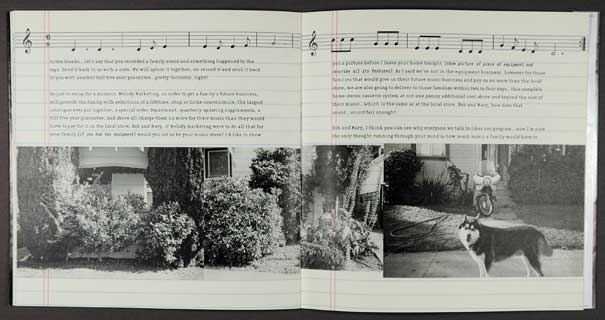 to the blanks... let's say that you recorded a family event and something happened to the
tape. Send it back to us with a note. We will splice it together, re-record it and send it back
to you with another full five year guarantee... pretty fantastic, right?
So just to recap for a moment, Melody Marketing, in order to get a family's future business,
will provide the family with selections of a lifetime, shop at home convenience, the largest
catalogue ever put together, a special order Department, quarterly updating supplements, a
full five year guarantee, and above all charge them no more for their music than they would
have to pay for it at the local store. Bob and Mary, if Melody Marketing were to do all that for
your family would you let us be your music store? I'd like to show
you a picture before I leave your home tonight, (show picture of piece of equipment and
describe all its features). As I said we're not in the equipment business, however for those
families that would give us their future music business and pay us no more than the local
store, we are also going to deliver to those families within two to four days, this complete
home stereo cassette system at not one penny additional cost above and beyond the cost of
their music... which is the same as at the local store. Bob and Mary, how does that
sound... sound fair enough?
Bob and Mary, I think you can see why everyone we talk to likes our program... now I'm sure
the only thought running through your mind is how much music a family would have to